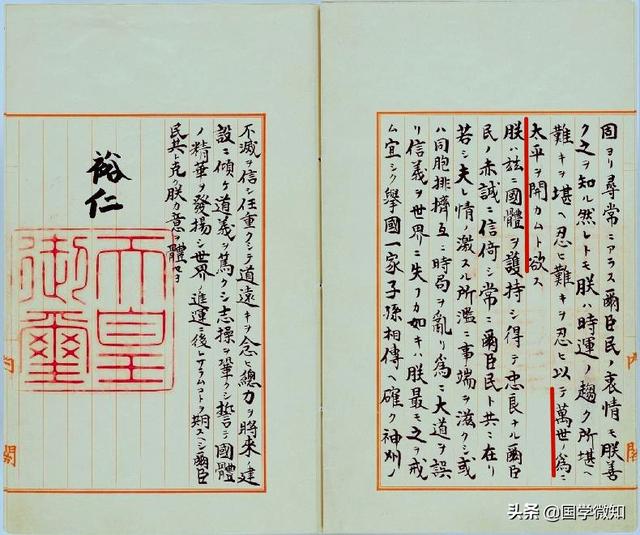 固ヨリ尋常ニアラス爾臣民ノ衷情モ朕善
ク之ヲ知ル然レトモ朕ハ時運ノ趨ク所堪ヘ
難キヲ堪ヘ忍ヒ難キヲ忍ヒ以テ萬世ノ爲ニ
太平ヲ開カムト欲ス
朕ハ茲ニ國體ヲ護持シ得テ忠良ナル爾臣
民ノ赤誠ニ信倚シ常ニ爾臣民ト共ニ在リ
若シ夫レ情ノ激スル所濫ニ事端ヲ滋クシ或
ハ同胞排擠互ニ時局ヲ亂リ爲ニ大道ヲ誤
リ信義ヲ世界ニ失フカ如キハ朕最モ之ヲ戒
ム宜シク擧國一家子孫相傳ヘ確ク神州ノ
不滅ヲ信シ任重クシテ道遠キヲ念ヒ總力ヲ將來ノ建
設ニ傾ケ道義ヲ篤クシ志操ヲ鞏クシ誓テ國體
ノ精華ヲ發揚シ世界ノ進運ニ後レサラムコトヲ期スヘシ爾臣
民其レ克ク朕カ意ヲ體セヨ
裕仁
天皇
御璽
内閣
头条 @国学微知